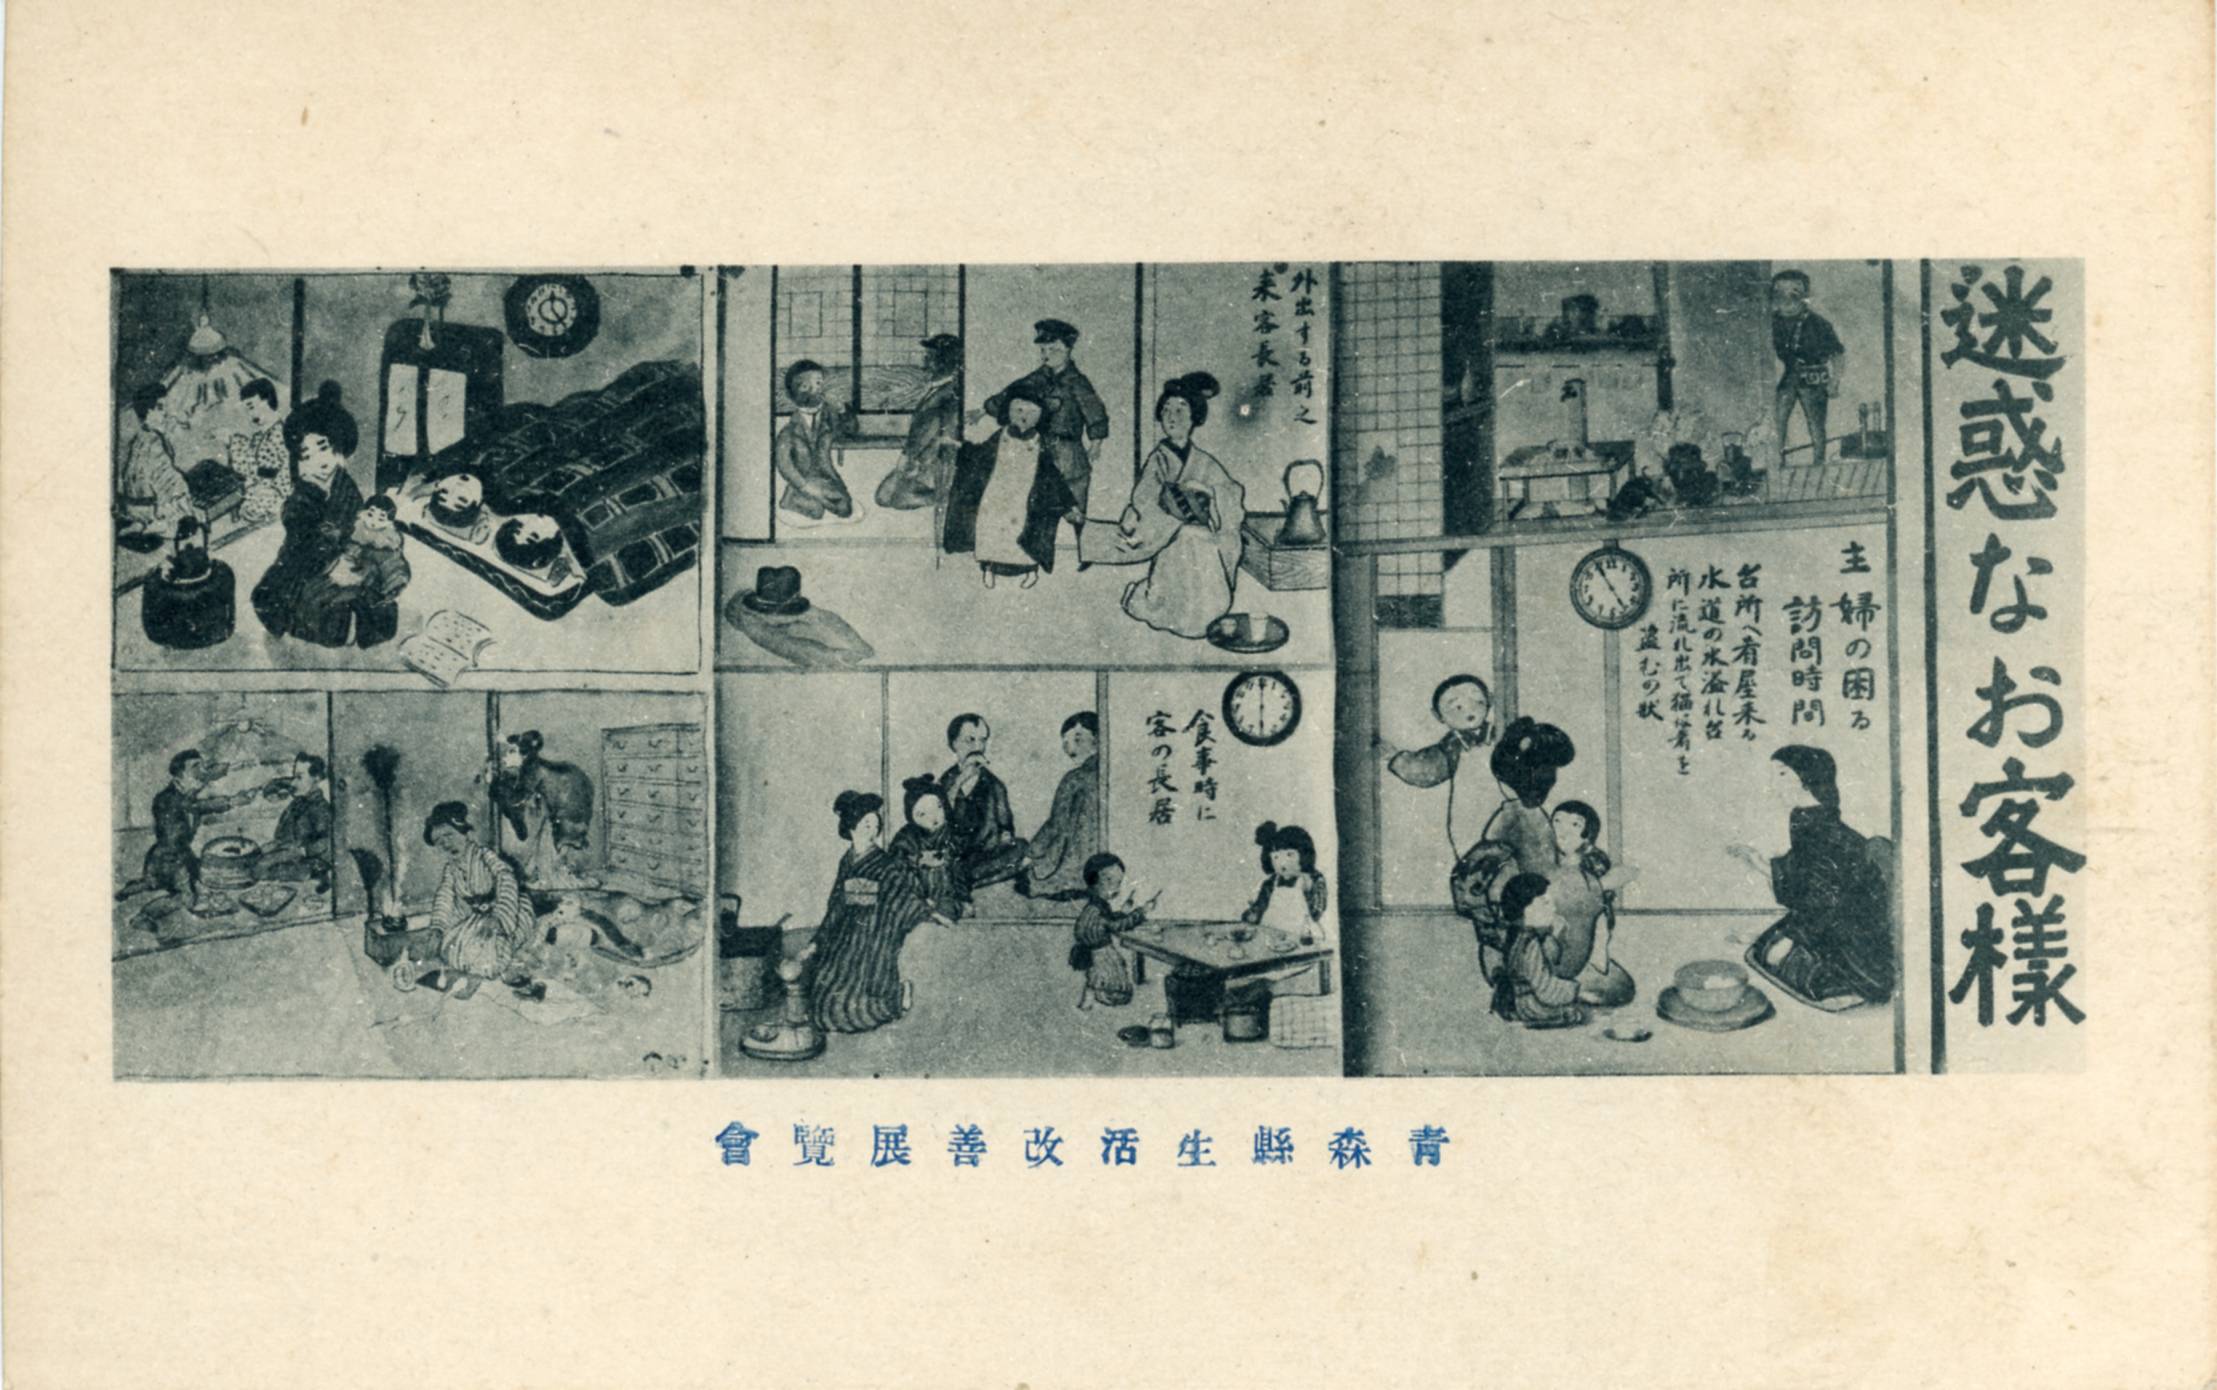 迷惑なお客樣
主婦の困る
訪問時間
台所へ肴屋来る
水道の水溢れ台
所に流れ出て猫は肴を
盗むの状
外出する前之
来客長居
食事時に
客の長居
青森縣生活改善展覽會